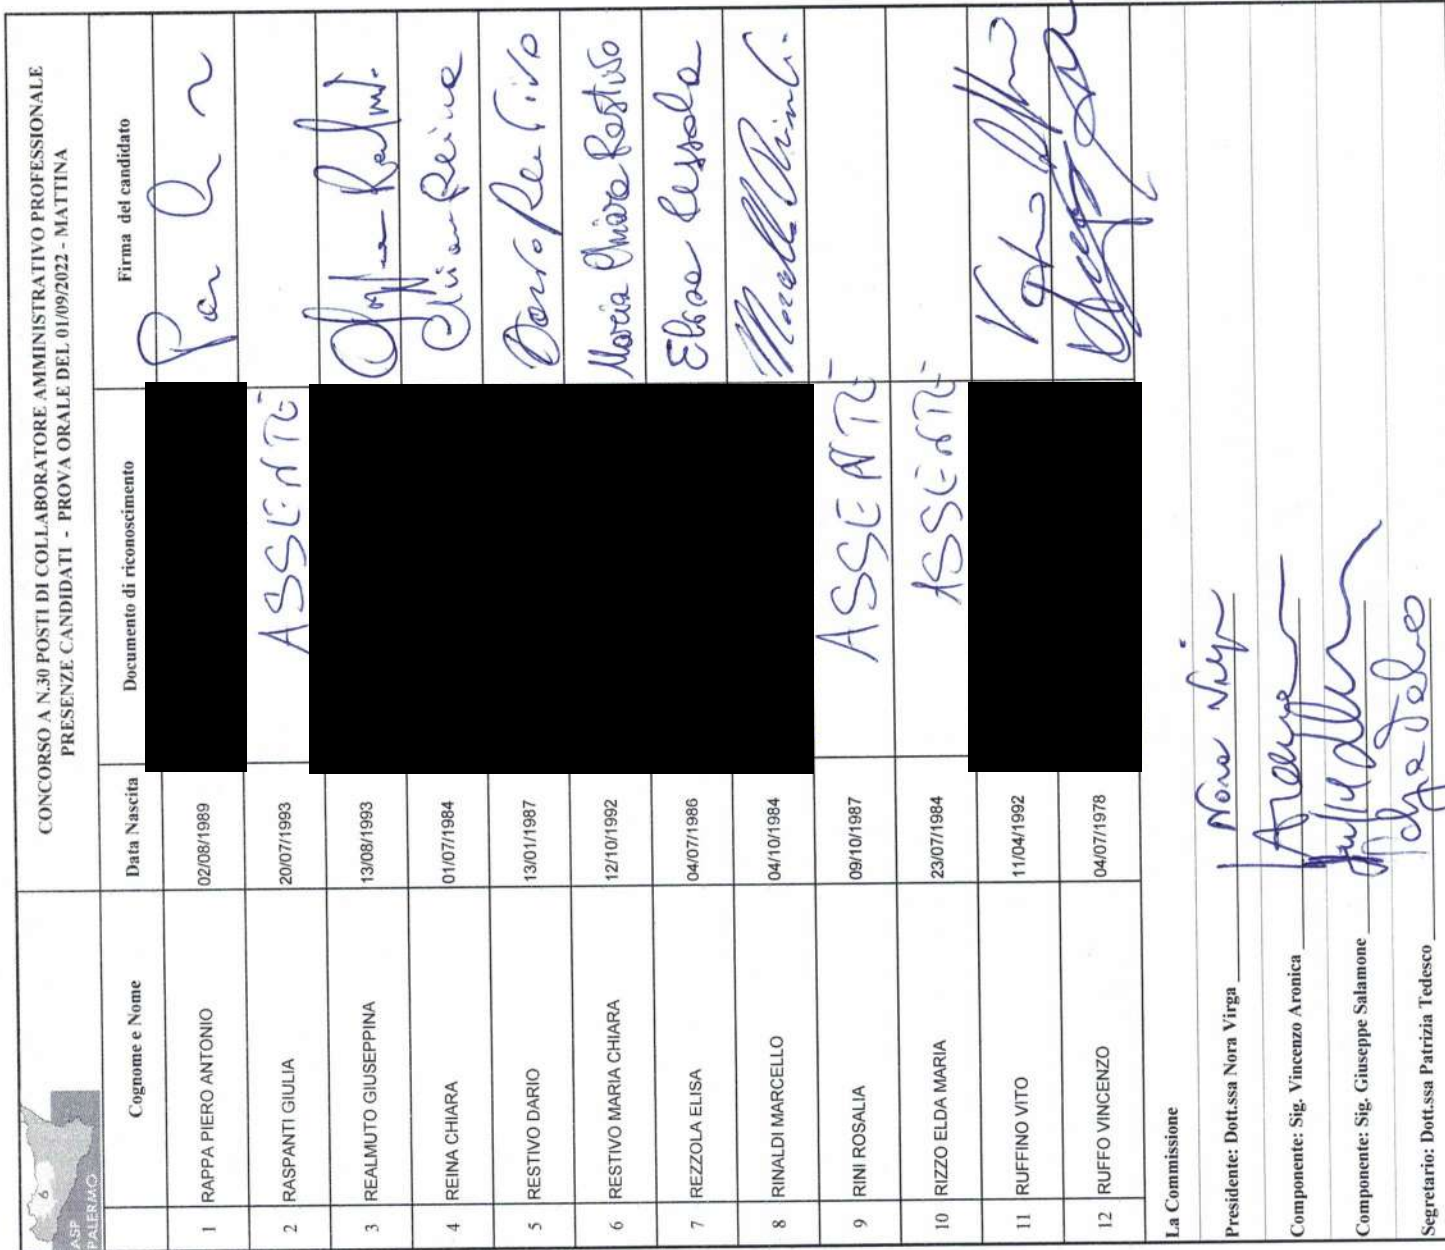 6
ASP
PALERMO
CONCORSO A N.30 POSTI DI COLLABORATORE AMMINISTRATIVO PROFESSIONALE
PRESENZE CANDIDATI - PROVA ORALE DEL 01/09/2022 - MATTINA
Cognome e Nome Data Nascita Documento di riconoscimento Firma del candidato
1 RAPPA PIERO ANTONIO 02/08/1989
2 RASPANTI GIULIA 20/07/1993 ASSENTE
3 REALMUTO GIUSEPPINA 13/08/1993
4 REINA CHIARA 01/07/1984 Chiara Reina
5 RESTIVO DARIO 13/01/1987 Dario Restivo
6 RESTIVO MARIA CHIARA 12/10/1992 Maria Chiara Restivo
7 REZZOLA ELISA 04/07/1986 Elisa Rezzola
8 RINALDI MARCELLO 04/10/1984
9 RINI ROSALIA 09/10/1987 ASSENTE
10 RIZZO ELDA MARIA 23/07/1984 ASSENTE
11 RUFFINO VITO 11/04/1992
12 RUFFO VINCENZO 04/07/1978
La Commissione
Presidente: Dott.ssa Nora Virga Nora Virga
Componente: Sig. Vincenzo Aronica
Componente: Sig. Giuseppe Salamone
Segretario: Dott.ssa Patrizia Tedesco